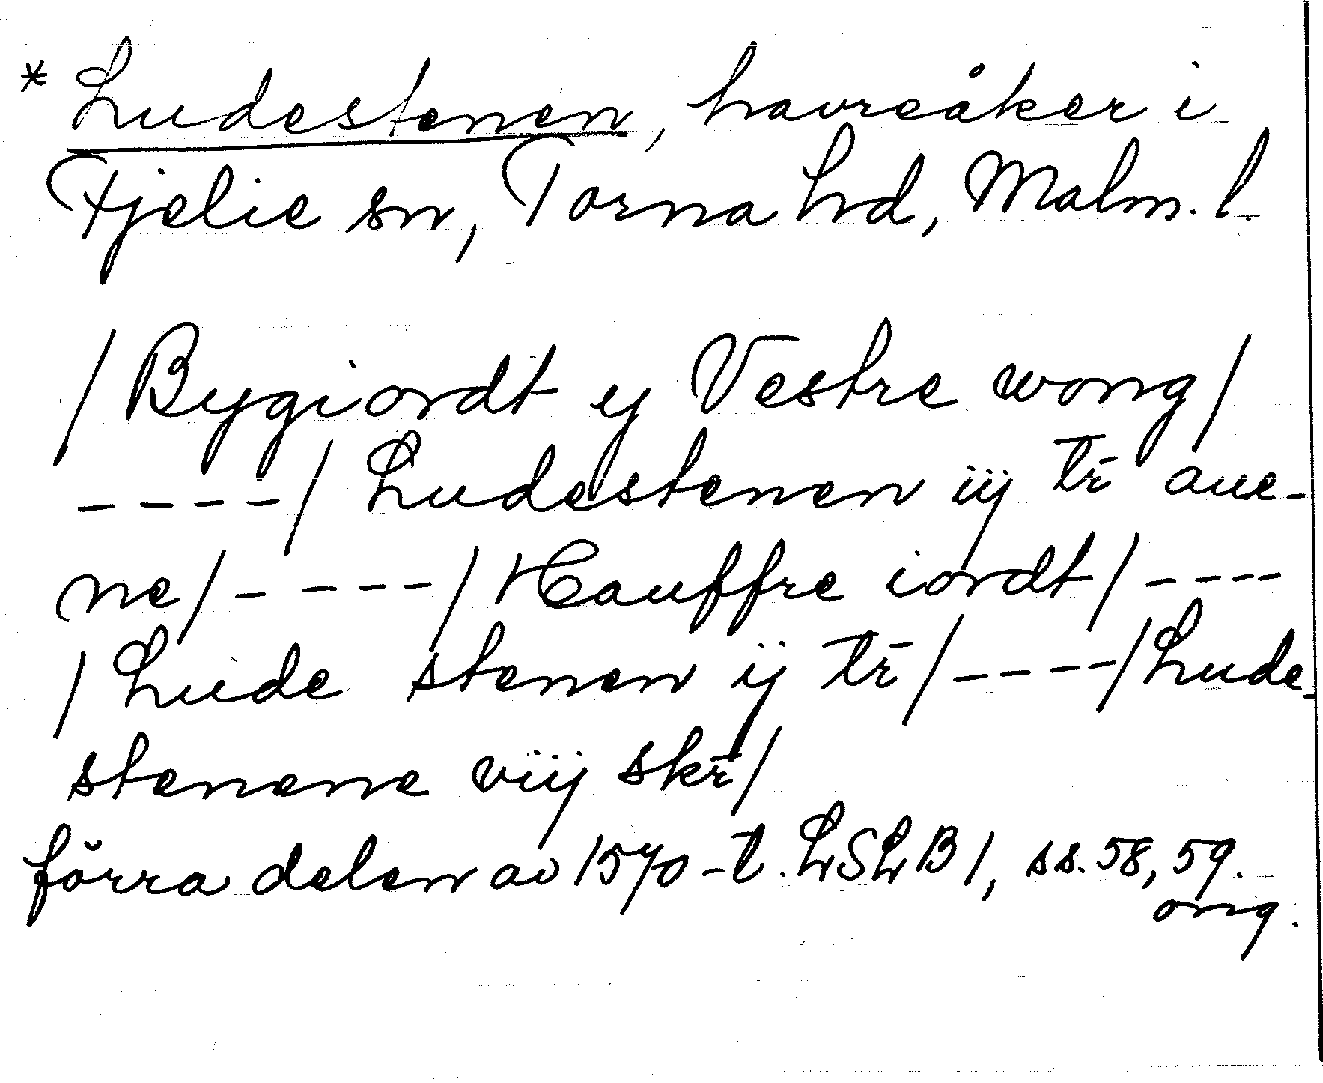 * Ludestenen, havreåker i
Fjelie sn, Torna hd, Malm. l.
/Bygiordt y Vestre wong/
----/Ludestenen iij tr̄ aue-
ne/----/Hauffre iordt/----
/Lude stenen ij tr̄/----/Lude-
stenene viij skr̄/
förra delen av 1570-t. LSLB 1, ss. 58, 59.
orig.